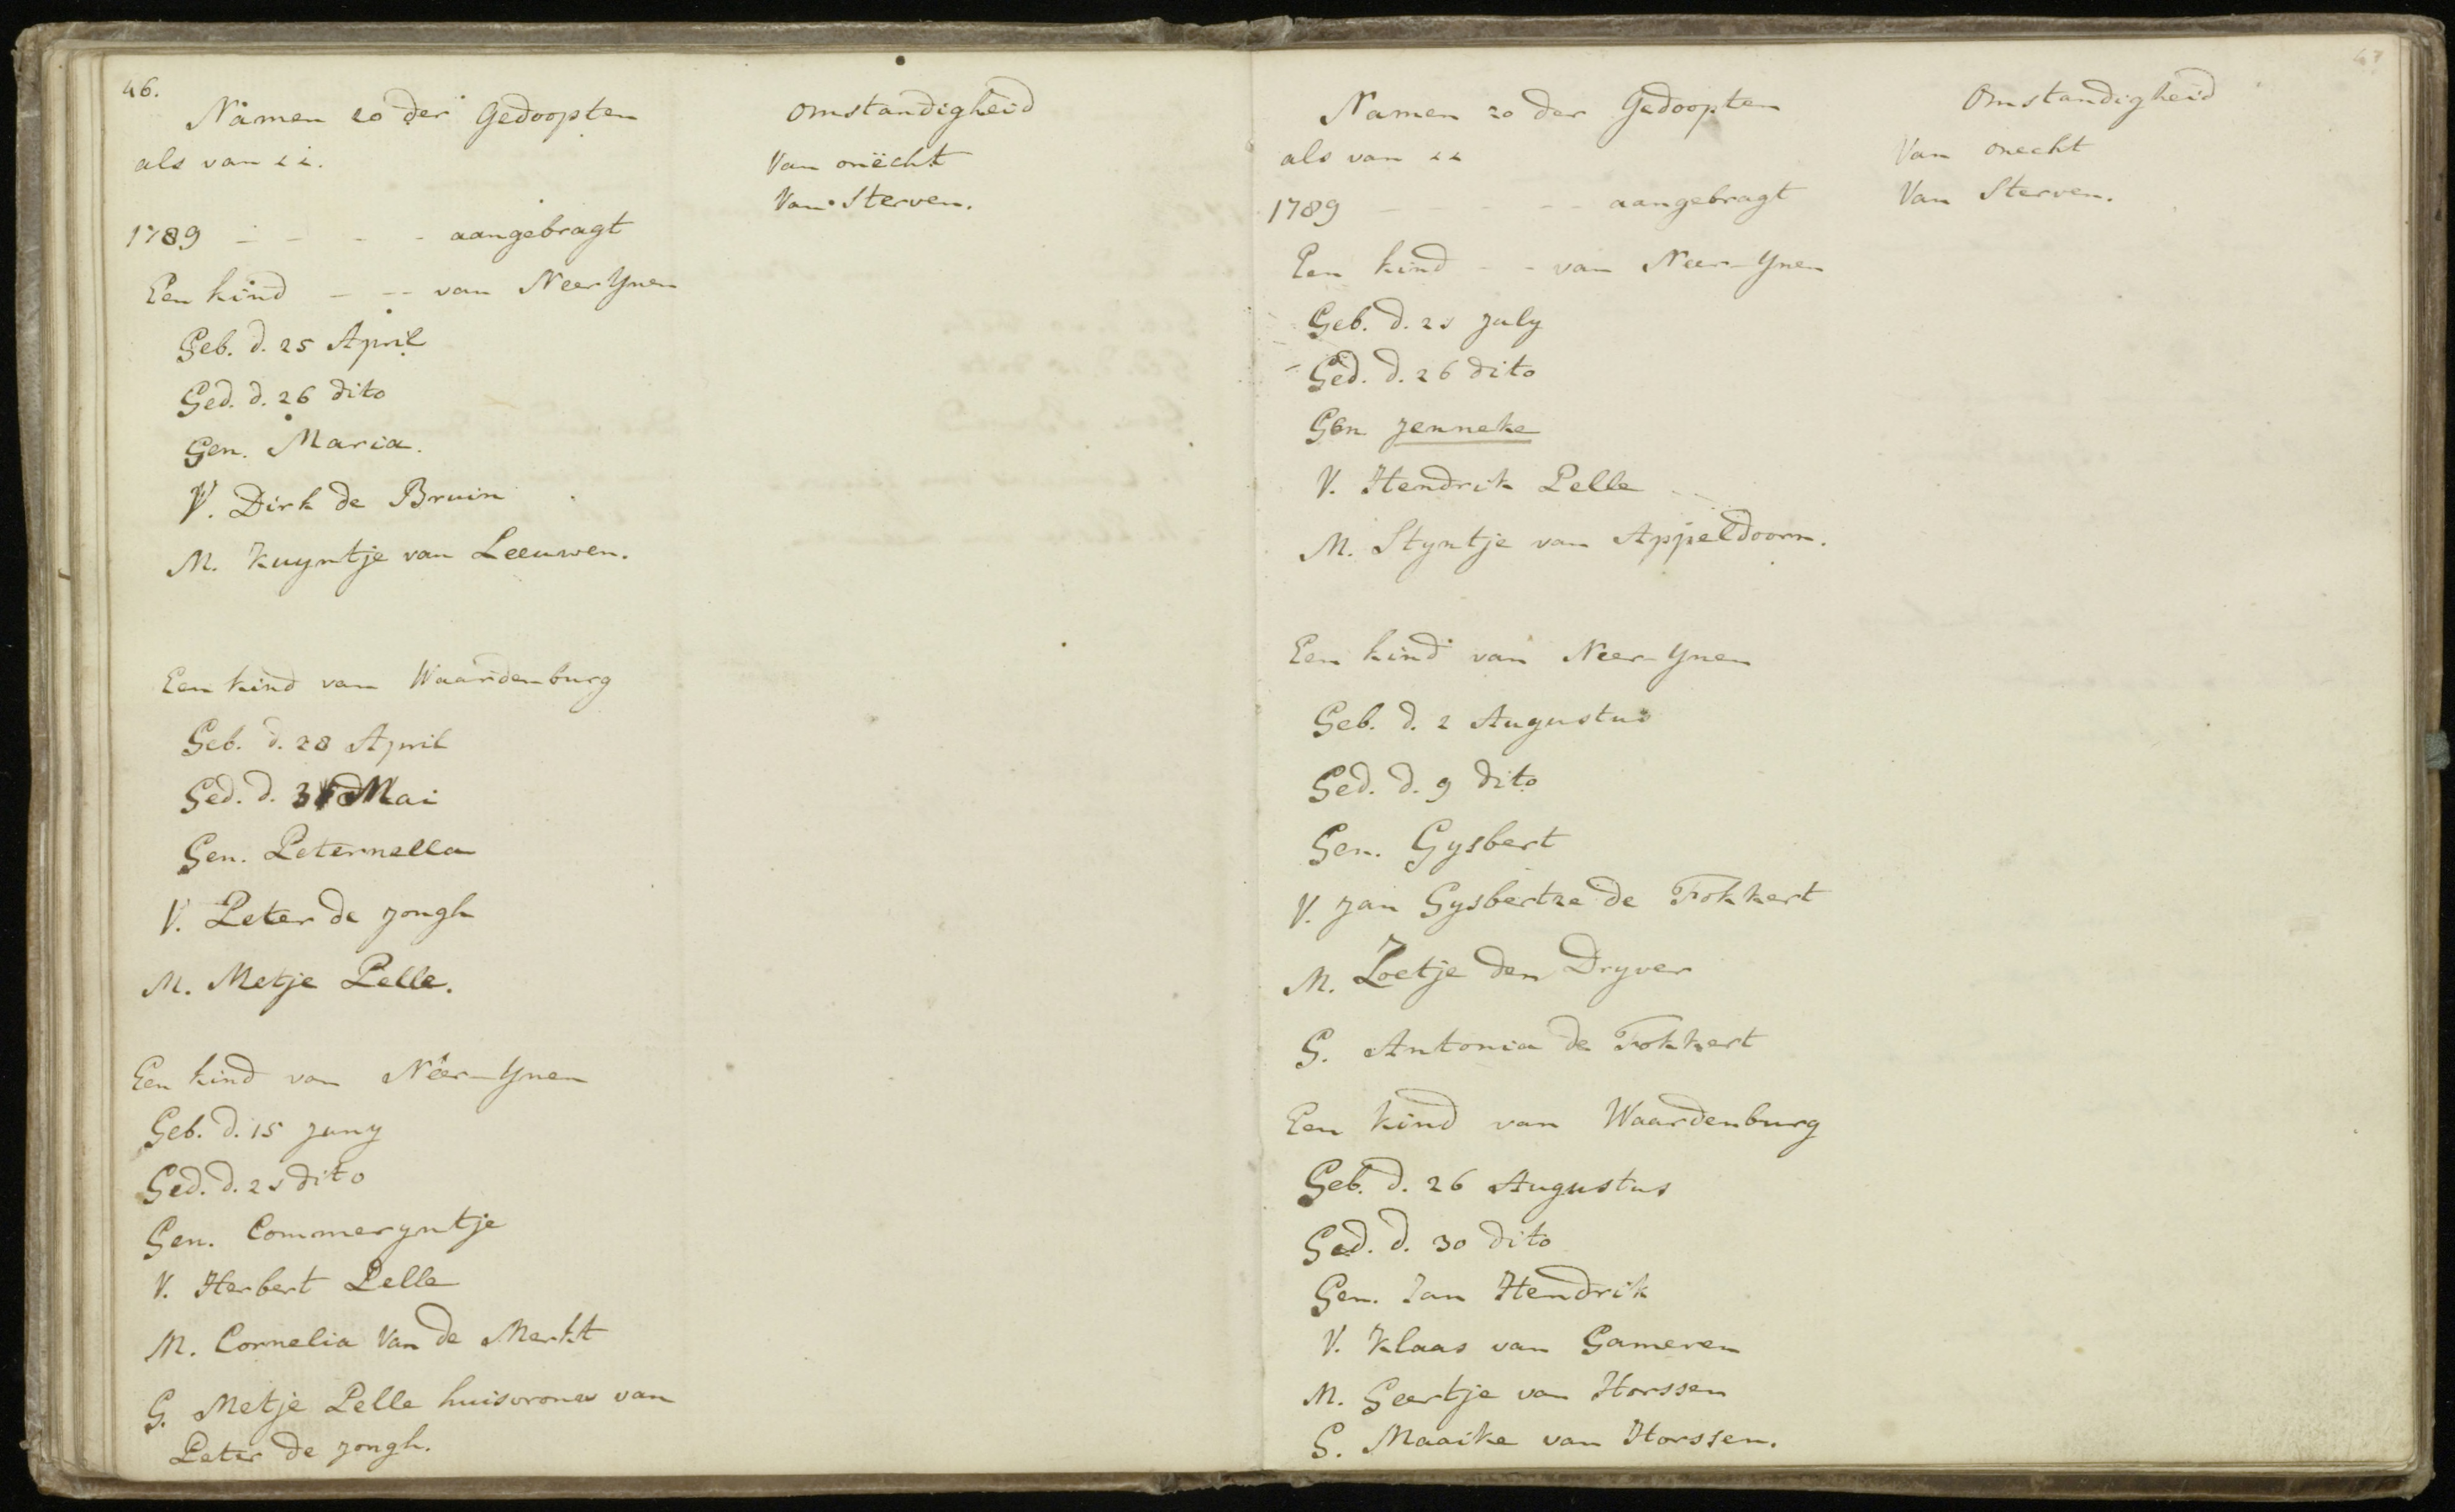 46.
Namen zo der Gedoopten
als van
1789 - - - - aangebragt
Een kind - -- van Neer Ynen
Geb. d. 25 April
Ged. d. 26 dito
Gen. Maria.
V. Dirk de Bruin
M. Kuyntje van Leeuwen.
Een kind van Waardenburg
Geb. d. 28 April
Ged. d. Mai
Gen. Peternella
V. Peter de Jongh
M. Metje Pelle.
Een kind van Neer-Ynen
Geb. d. 15 Juny
Ged. d. 21 dito
Gen. Commeryntje
V. Herbert Pelle
M. Cornelia Van de Merkt
G. Metje Pelle huisvrouw van
Peter de Jongh.
Omstandigheid
Van onëcht
Van Sterven.
47
Namen zo der Gedoopten
als van
1789 - - - - - aangebragt
Een kind - - van Neer-Ynen
Geb. d. 21 July
Ged. d. 26 dito
Gen Jenneke
V. Hendrik Pelle
M. Styntje van Appeldoorn.
Een kind van Neer-Ynen
Geb. d. 2 Augustus
Ged. d. 9 dito
Gen. Gysbert
V. Jan Gysbertze de Fokkert
M. Zoetje den Dryver
G. Antonia de Fokkert
Een kind van Waardenburg
Geb. d. 26 Augustus
Ged. d. 30 dito
Gen. Jan Hendrik
V. Klaas van Gameren
M. Geertje van Horssen
G. Maaike van Horssen.
Omstandigheid
Van onecht
Van Sterven.